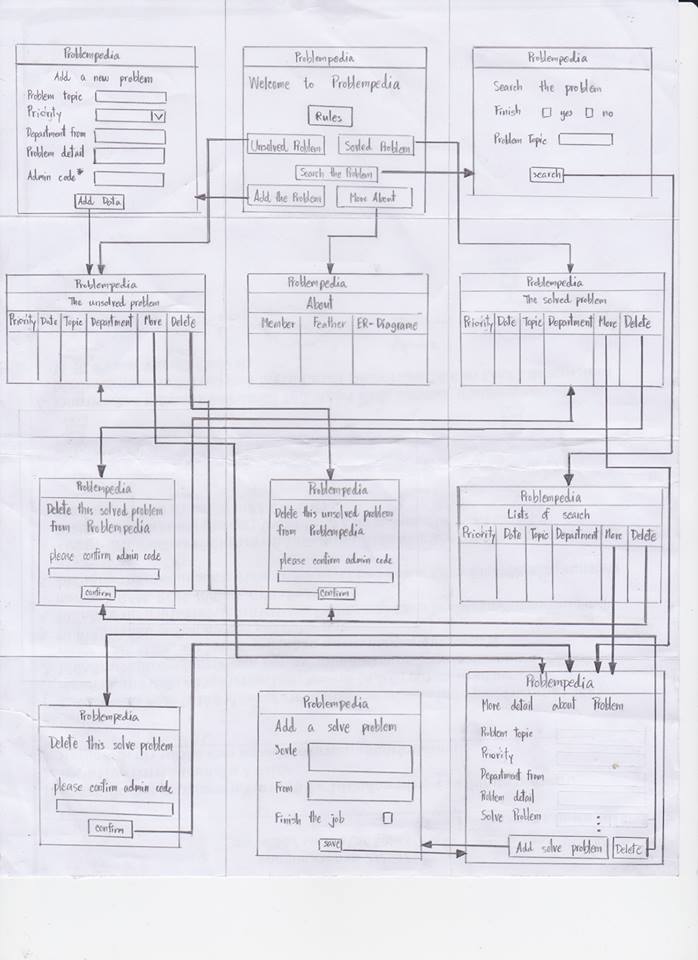 Problempedia
Add a new problem
Problem topic
Priority
Department from
Problem detail
Admin code*
Add Data
Problempedia
Welcome to Problempedia
Rules
Unsolved Problem
Solved Problem
Search the Problem
Add the Problem
More About
Problempedia
Search the problem
Finish yes no
Problem Topic
search
Problempedia
The unsolved problem
Priority Date Topic Department More Delete
Problempedia
About
Member Feather ER-Diagrame
Problempedia
The solved problem
Priority Date Topic Department More Delete
Problempedia
Delete this solved problem
from Problempedia
please confirm admin code
confirm
Problempedia
Delete this unsolved problem
from Problempedia
please confirm admin code
confirm
Problempedia
Lists of search
Priority Date Topic Department More Delete
Problempedia
Delete this solve problem
please confirm admin code
confirm
Problempedia
Add a solve problem
Sovle
From
Finish the job
save
Problempedia
More detail about Problem
Problem topic
Priority
Department from
Problem detail
Solve Problem
Add solve problem
Delete